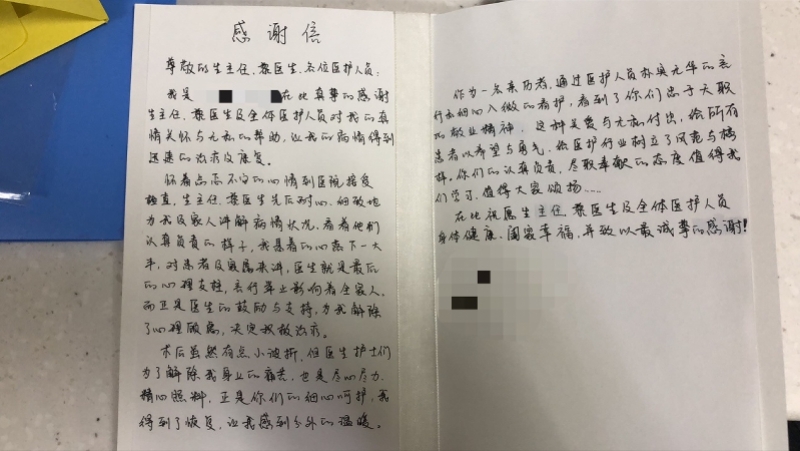 感谢信
尊敬的生主任、蔡医生、各位医护人员:
我是 在此真挚的感谢
生主任、蔡医生及全体医护人员对我的真
情关怀与无私的帮助,让我的病情得到
迅速的治疗及康复。
怀着忐忑不安的心情到医院接受
检查,生主任、蔡医生先后耐心、细致地
为我及家人讲解病情状况,看着他们
认真负责的样子,我悬着的心落下一大
半,对患者及家属来讲,医生就是最后
的心理支柱,言行举止影响着全家人。
而正是医生的鼓励与支持,为我解除
了心理顾虑,决定积极治疗。
术后虽然有点小波折,但医生护士们
为了解除我身上的痛苦,也是尽心尽力、
精心照料,正是你们的细心呵护,我
得到了恢复,让我感到分外的温暖。
作为一名亲历者,通过医护人员朴实无华的言
行和细心入微的看护,看到了你们忠于天职
的敬业精神,这种是爱与无私付出,给所有
患者以希望与勇气,给医护行业树立了风范与榜
样。你们的认真负责、尽职奉献的态度值得我
们学习,值得大家颂扬……
在此祝愿生主任、蔡医生及全体医护人员
身体健康、阖家幸福,并致以最诚挚的感谢!